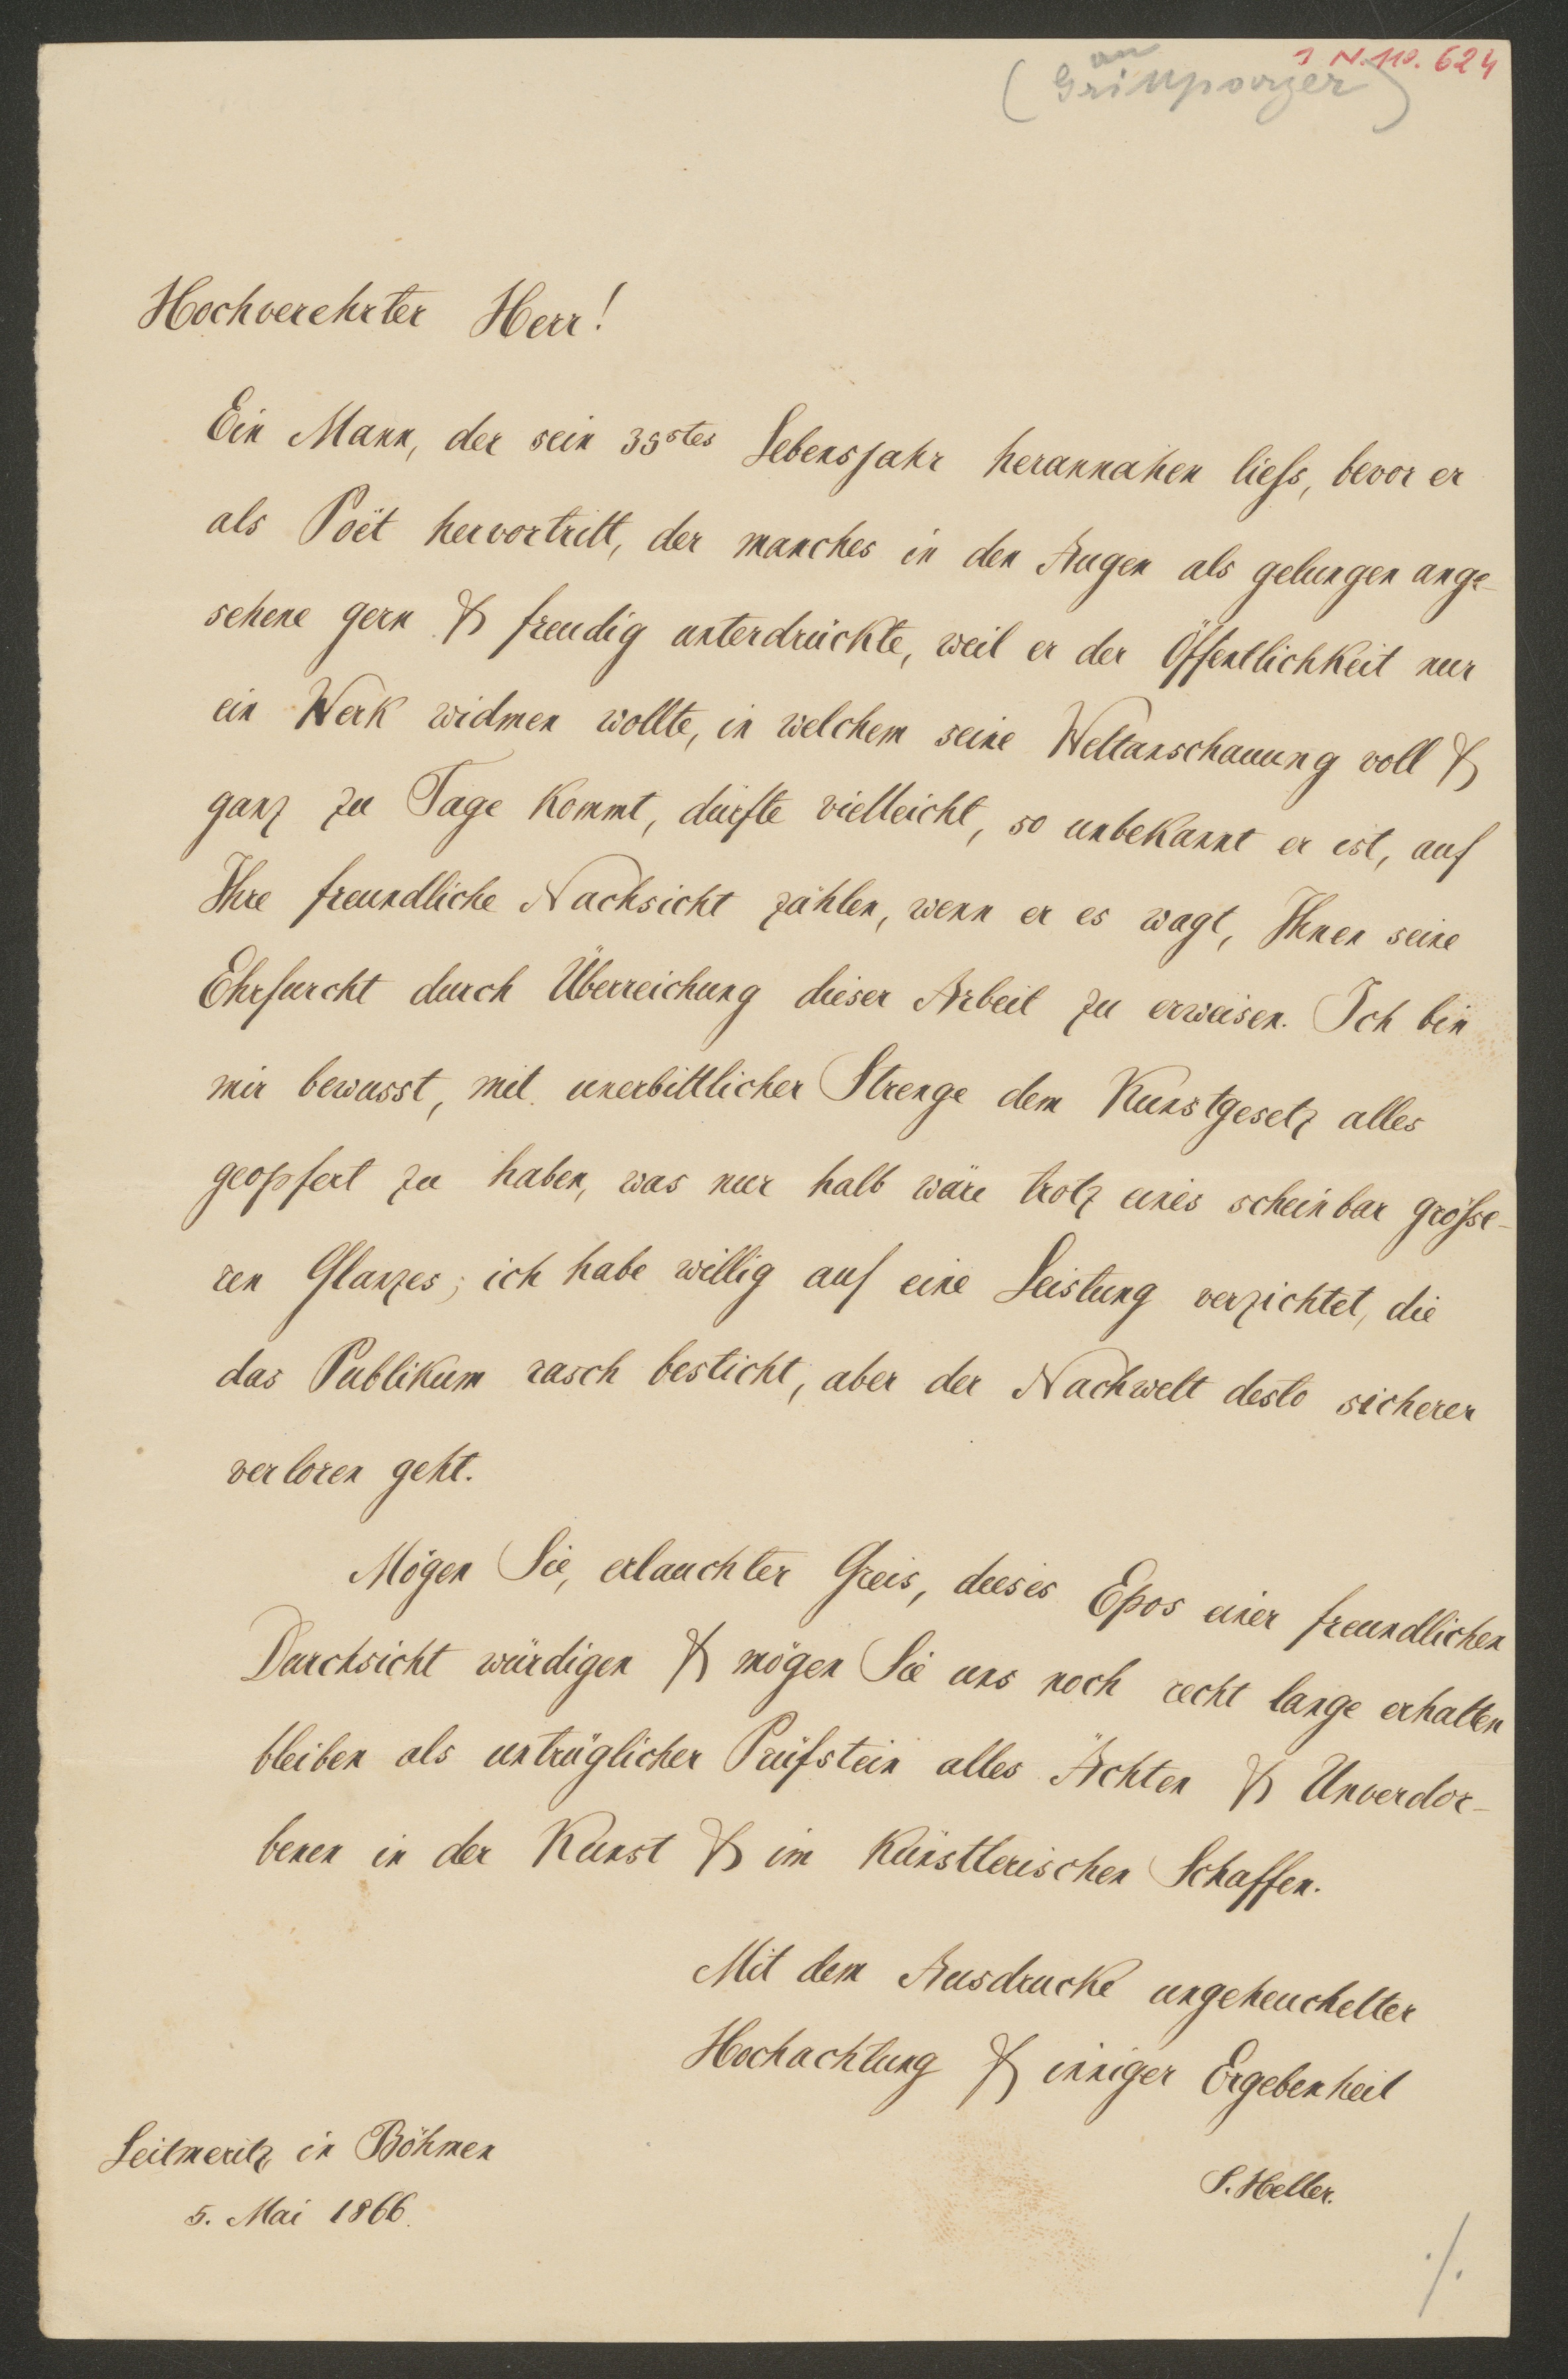 J. N. 110. 624
(an
Grillparzer)
Hochverehrter Herr!
Ein Mann, der sein 39stes Lebensjahr herannahen liess, bevor er
als Poët hervortritt, der manches in den Augen als gelungen ange-
sehene gern & freudig unterdrückte, weil er der Öffentlichkeit nur
ein Werk widmen wollte, in welchem seine Weltanschauung voll &
ganz zu Tage kommt, dürfte vielleicht, so unbekannt er ist, auf
Ihre freundliche Nachsicht zählen, wenn er es wagt, Ihnen seine
Ehrfurcht durch Überreichung dieser Arbeit zu erweisen. Ich bin
mir bewusst, mit unerbittlicher Strenge dem Kunstgesetz alles
geopfert zu haben, was nur halb wäre trotz eines scheinbar grösse-
ren Glanzes; ich habe willig auf eine Leistung verzichtet, die
das Publikum rasch besticht, aber der Nachwelt desto sicherer
verloren geht.
Mögen Sie, erlauchter Greis, dieses Epos einer freundlichen
Durchsicht würdigen & mögen Sie uns noch recht lange erhalten
bleiben als untrüglicher Prüfstein alles Ächten & Unverdor-
benen in der Kunst & im künstlerischen Schaffen.
Mit dem Ausdrucke ungeheuchelter
Hochachtung & inniger Ergebenheit
S. Heller.
Leitmeritz in Böhmen
5. Mai 1866.
./.